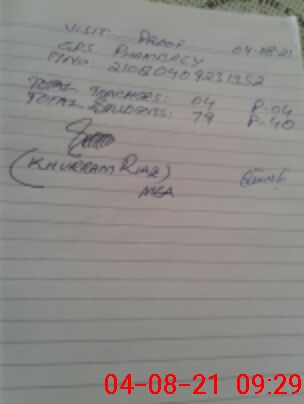 VISIT PROOF 04-08-21
GPS BHAMBREY
P/NO. 21080409231352
TOTAL TEACHERS: 04 P-04
TOTAL STUDENTS: 79 P-40
(KHURRAM RIAZ)
MEA
04-08-21 09:29